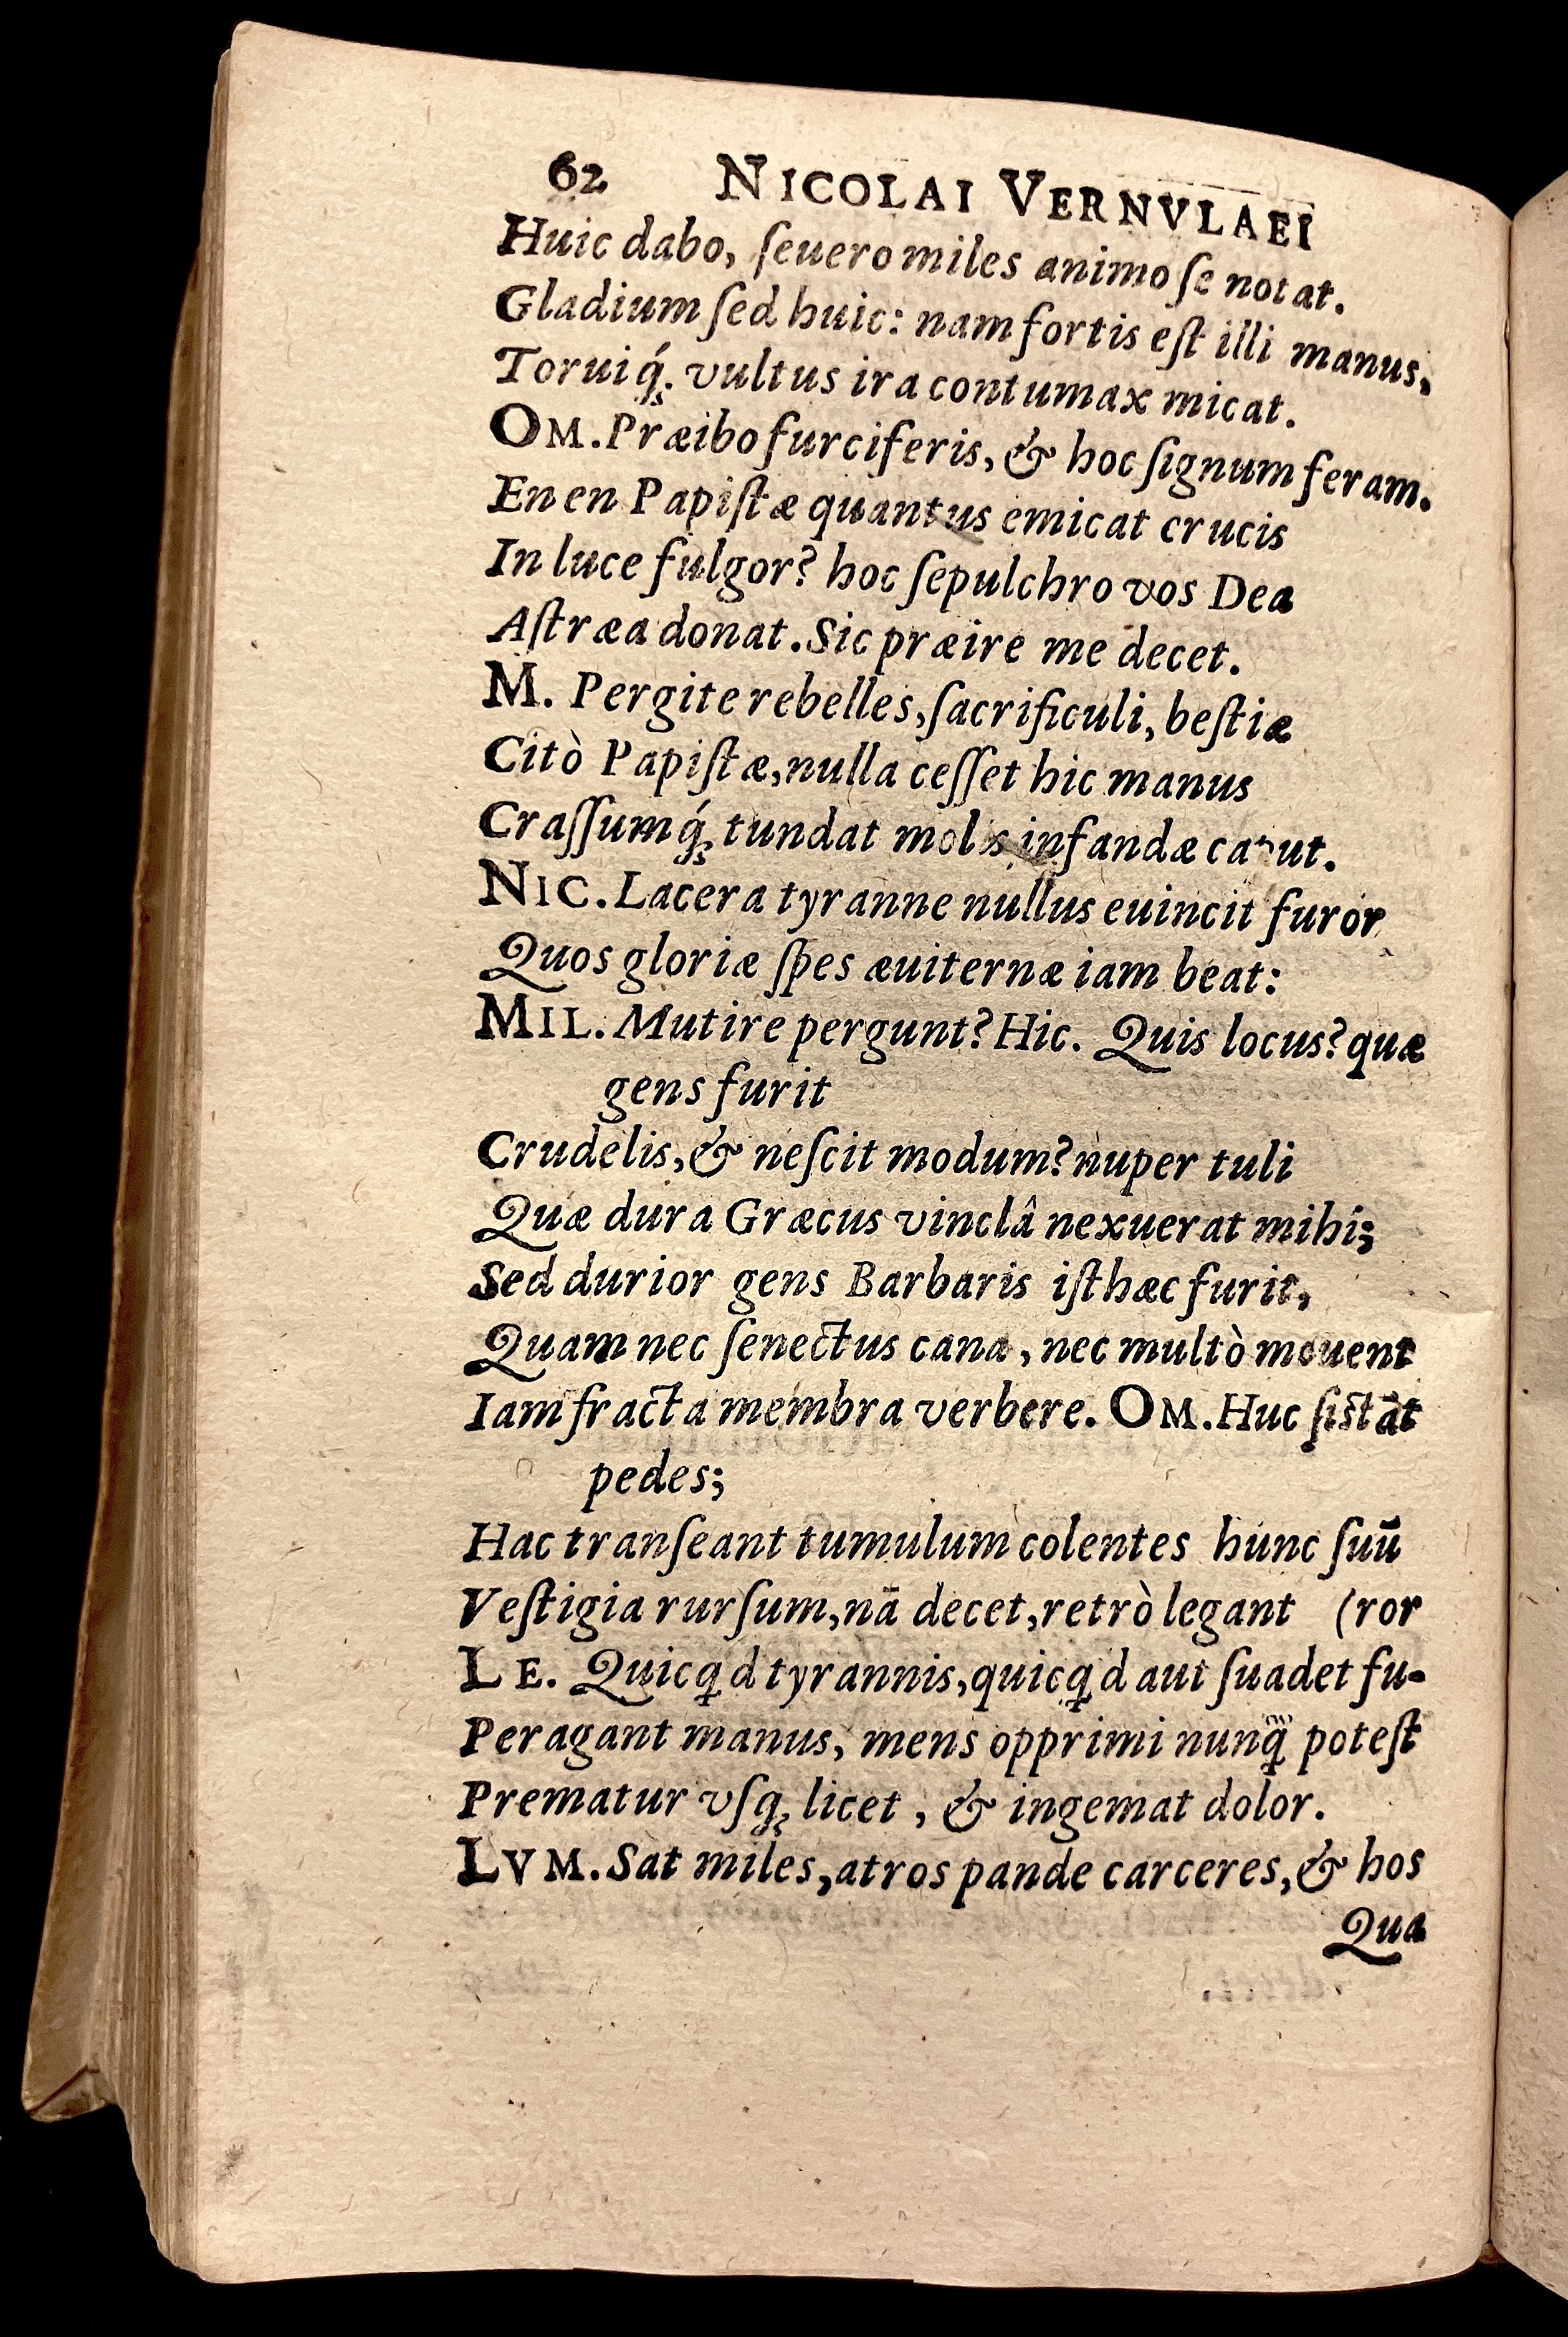 62 NICOLAI VERNVLAEI
Huic dabo, ſeuero miles animo ſe notat.
Gladium ſed huic: nam fortis eſt illi manus,
Toruiq́; vultus ira contumax micat.
OM. Præibo furciferis, & hoc ſignum feram.
En en Papiſtæ quantus emicat crucis
In luce fulgor? hoc ſepulchro vos Dea
Aſtræa donat. Sic præire me decet.
M. Pergite rebelles, ſacrificuli, beſtiæ
Citò Papiſtæ, nulla ceſſet hic manus
Craſſumq́; tundat molis infandæ caput.
NIC. Lacera tyranne nullus euincit furor
Quos gloriæ ſpes æuiternæ iam beat:
MIL. Mutire pergunt? Hic. Quis locus? quæ
gens furit
Crudelis, & neſcit modum? nuper tuli
Quæ dura Græcus vinclâ nexuerat mihi;
Sed durior gens Barbaris iſthæc furit,
Quam nec ſenectus cana, nec multò mouent
Iam fracta membra verbere. OM. Huc ſiſtāt
pedes;
Hac tranſeant tumulum colentes hunc ſuū
Veſtigia rurſum, nā decet, retrò legant (ror
LE. Quicq̃d tyrannis, quicq̃d aut ſuadet fu-
Peragant manus, mens opprimi nunq̃ poteſt
Prematur vſq; licet, & ingemat dolor.
LVM. Sat miles, atros pande carceres, & hos
Qua